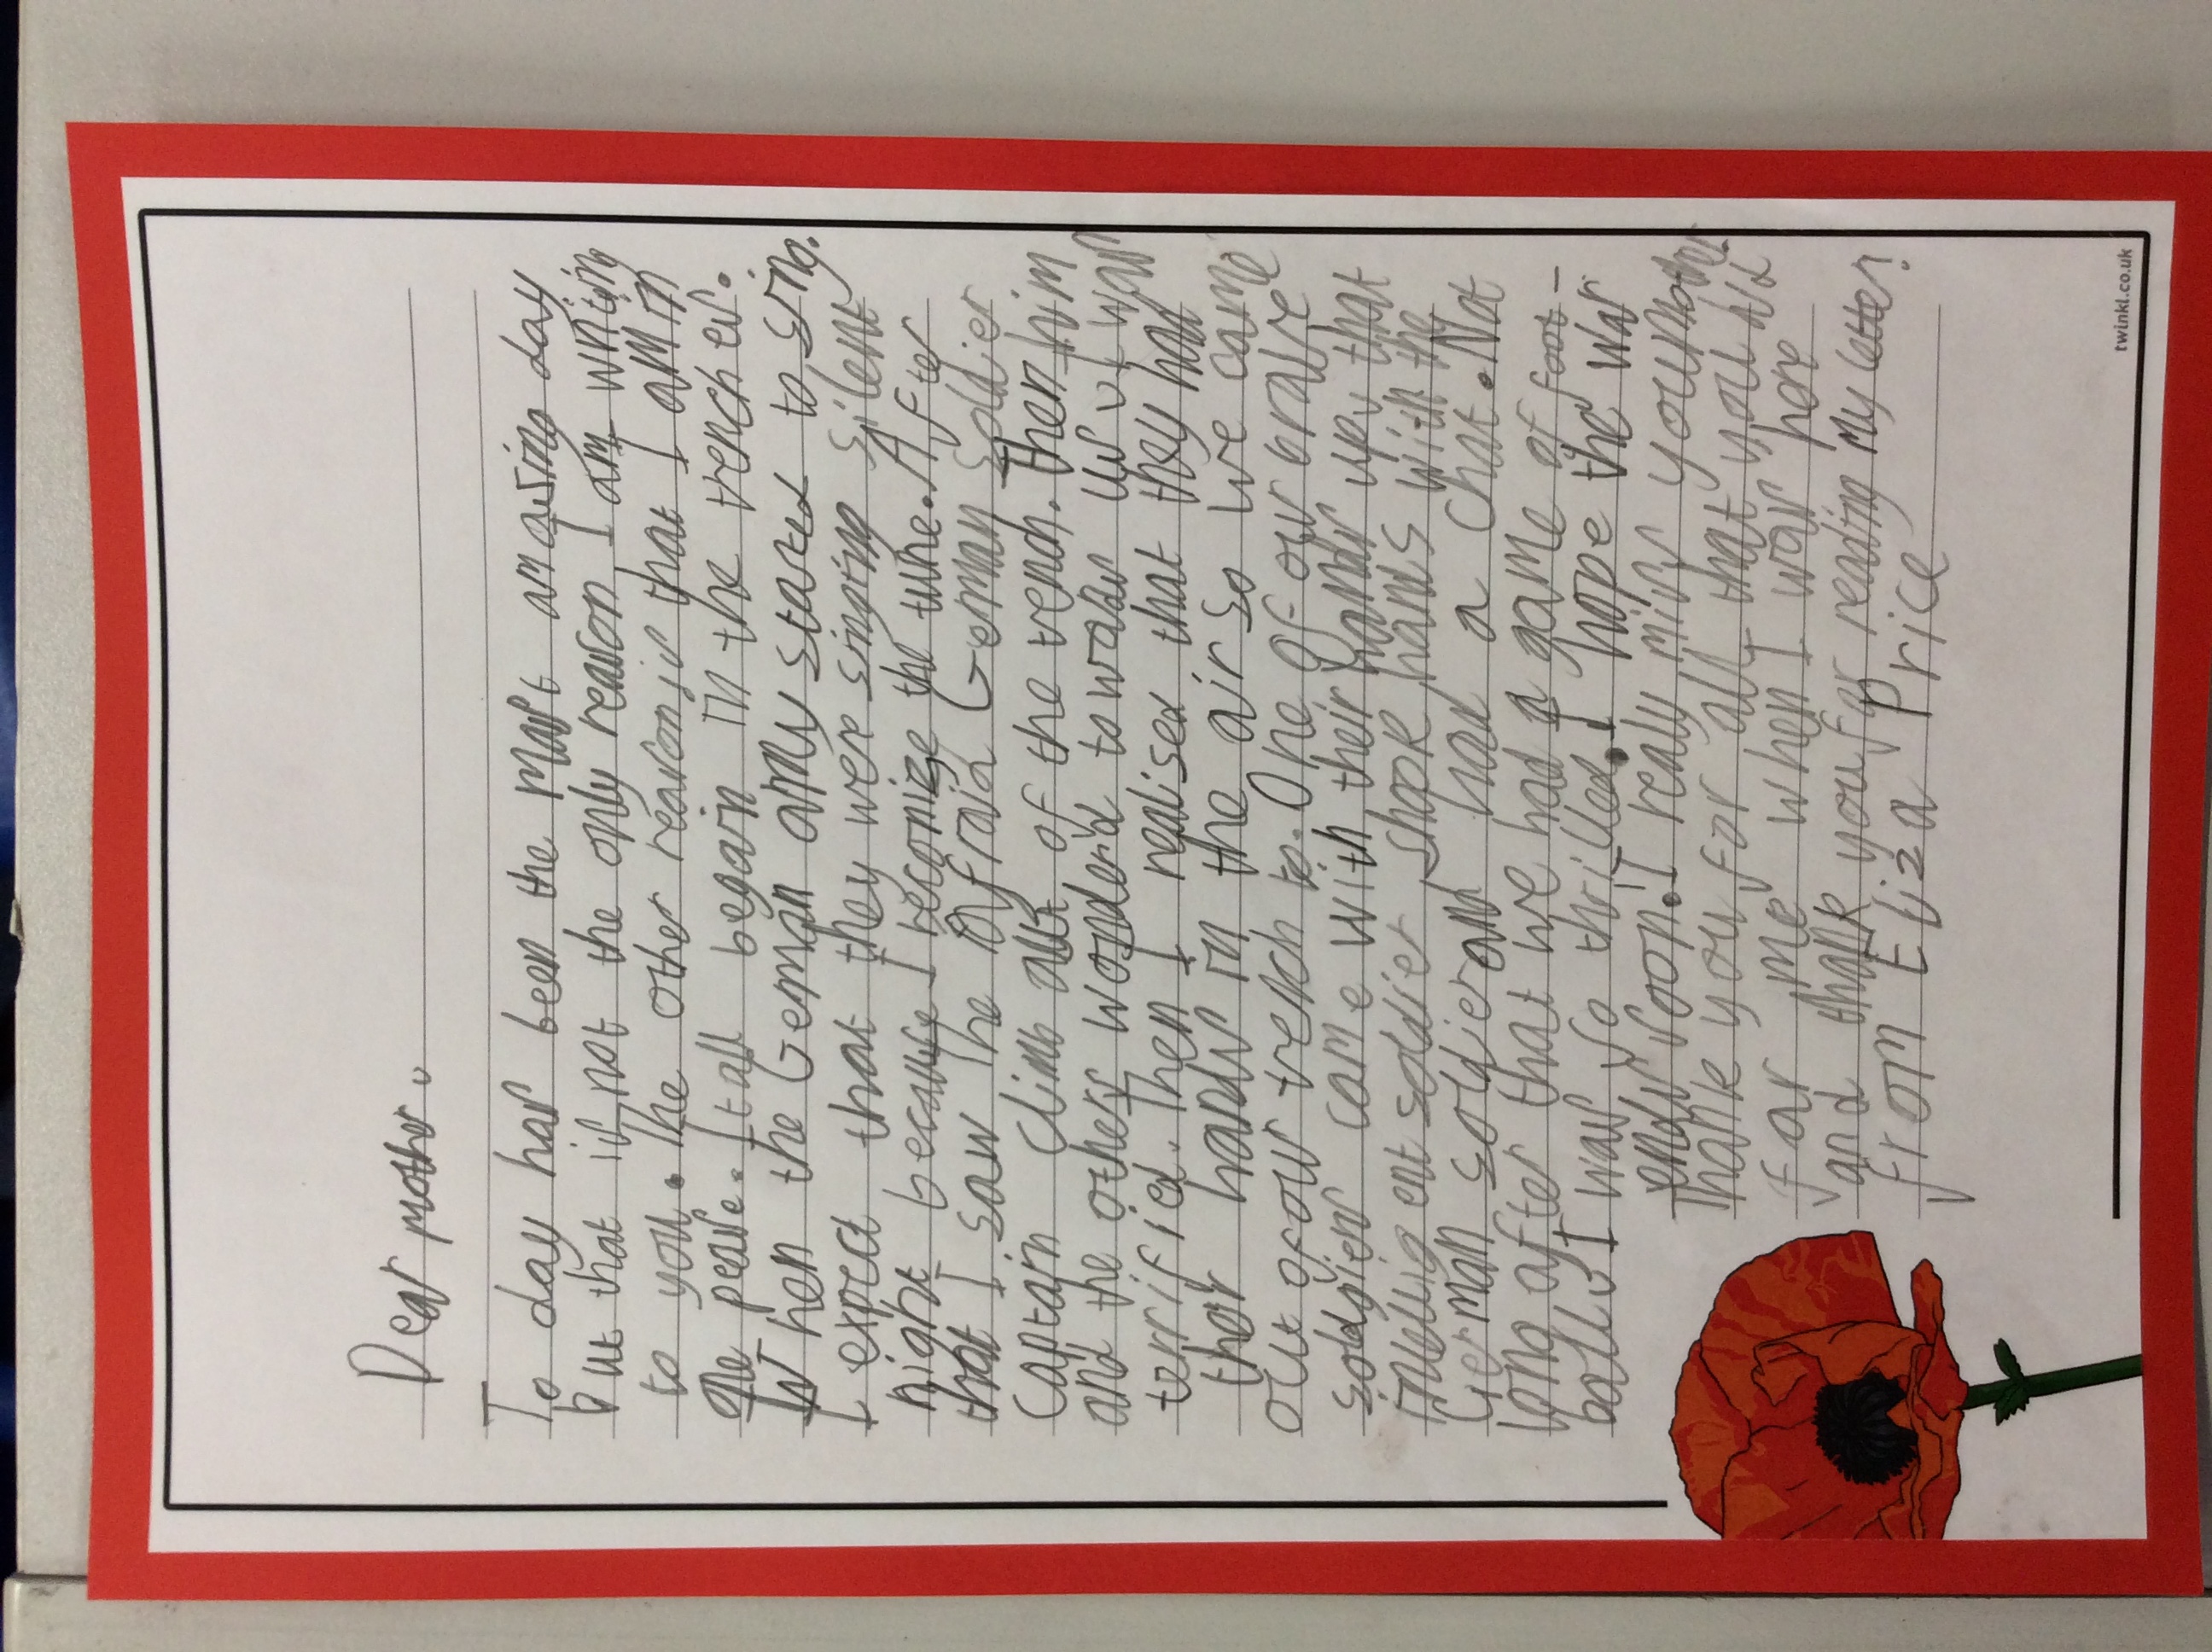 Dear mother,
To day has been the most amazing day
but that is not the only reason I am writing
to you. The other reason is that I am in
the pease. It all begain in the trench es.
When the Geman army started to sing.
I expect that they were singing silent
night because I recognize the tune. After
that I saw the Unfraid German soldier
Captain climb out of the trench. Then him
and the others wonder'd towards us I was
terrified. Then I realised that they had
their hands in the air so we came
out of our trench to. One of our brave
soldgiers came with their hands up that
intelligent soldier shook hands with the
German soldier and had a chat. Not
long after that we had a game of foot-
ball I was so thrilled. I hope the war
ends soon. I really miss you mother
Thank you for all that you did
for me when I was here
and thank you for reading my letter.
from Eliza Price
twinkl.co.uk